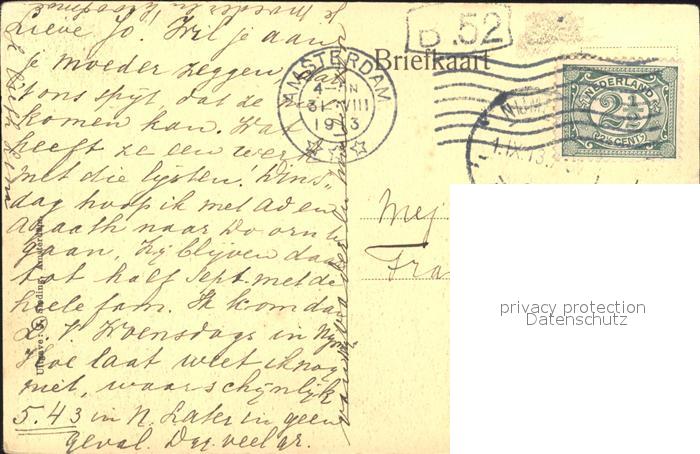 Lieve Jo. Wil je aan
je moeder zeggen, dat
't ons spijt, dat ze niet
komen kan. Wat
heeft ze een werk
met die lijsten. Dins-
dag hoop ik met Ad en
Agaath naar Doorn te
gaan, zij blijven daar
tot half Sept. met de
heele fam. Ik kom dan
D. V. Woensdags in Nijm.
Hoe laat weet ik nog
niet, waarschijnlijk
5.43 in N. Later in geen
geval. Dag. veel gr.
Uitgave: Amsterdam
B.52
Briefkaart
AMSTERDAM
4-5N
31 VIII
1913
1.IX.13
NEDERLAND
2½
2½ CENT
Mej
Fra
privacy protection
Datenschutz